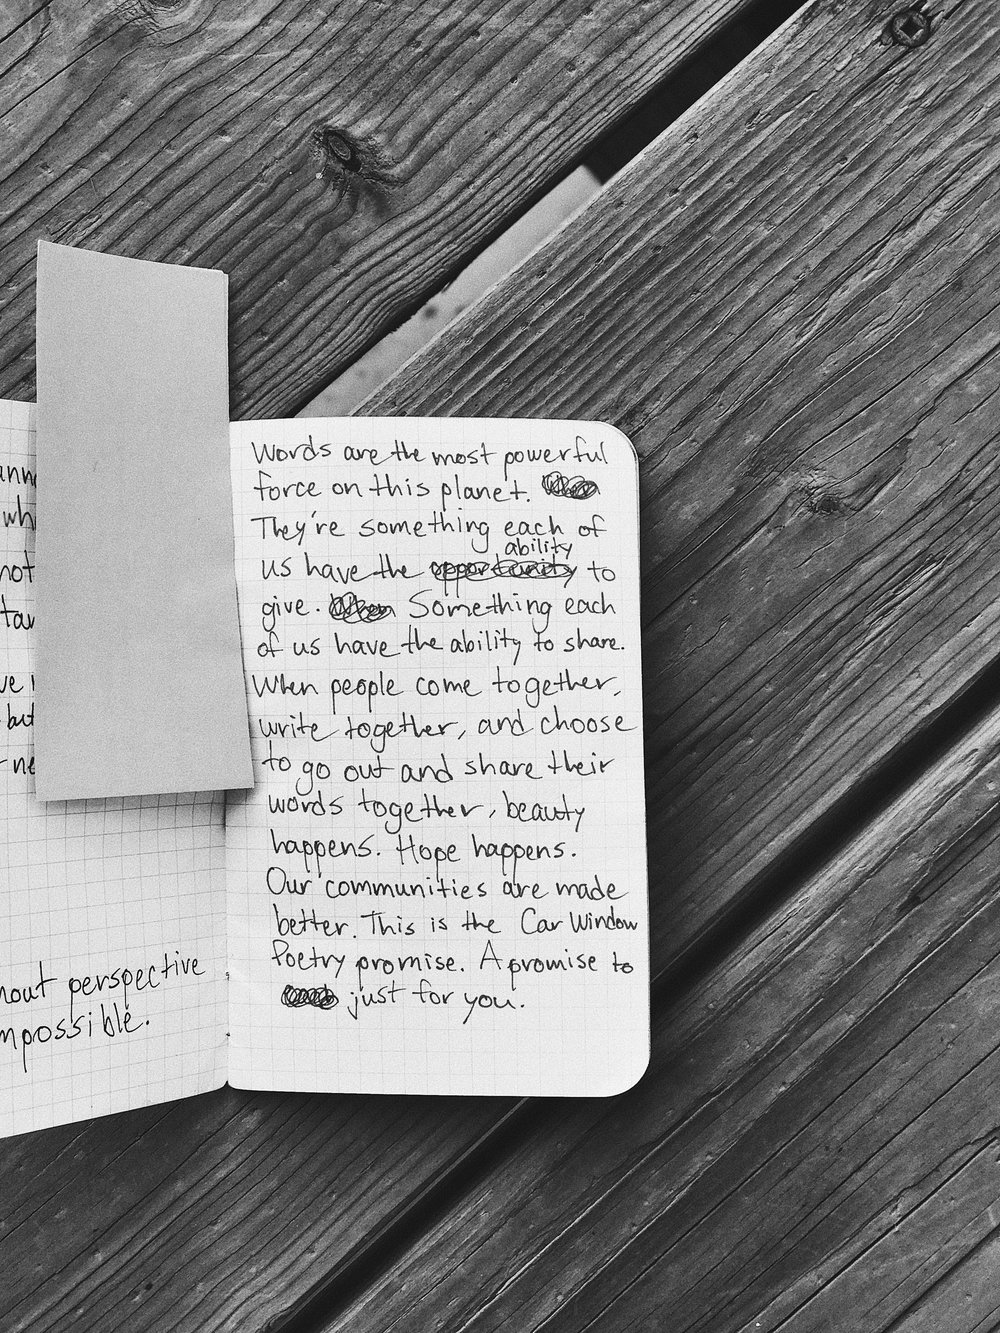 not
but
out perspective
mpossible.
Words are the most powerful
force on this planet.
They're something each of
us have the opportunity ability to
give. When Something each
of us have the ability to share.
When people come together,
write together, and choose
to go out and share their
words together, beauty
happens. Hope happens.
Our communities are made
better. This is the Car Window
Poetry promise. A promise to
just for you.